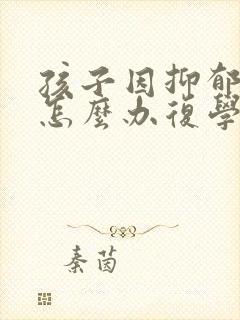 孩子因抑郁
怎麼办復學
秦茵